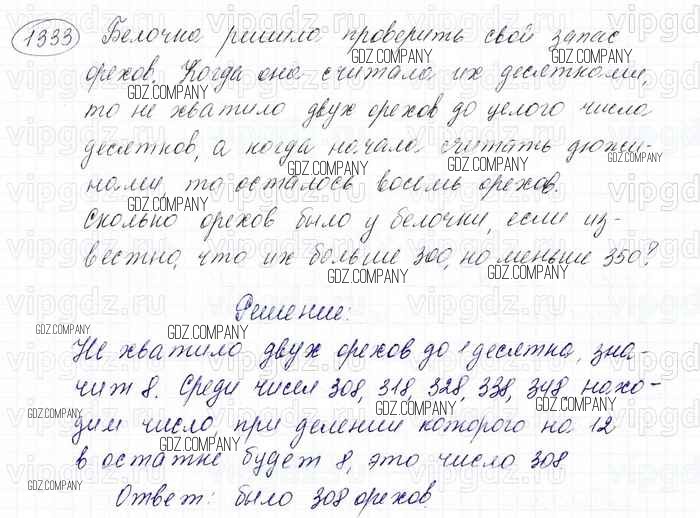 1333 Белочка решила проверить свой запас
орехов. Когда она считала их десятками,
то не хватило двух орехов до целого числа
десятков, а когда начала считать дюжи-
нами, то осталось восемь орехов.
Сколько орехов было у белочки, если из-
вестно, что их больше 300, но меньше 350?
Решение:
Не хватило двух орехов до 1 десятка, зна-
чит 8. Среди чисел 308, 318, 328, 338, 348, нахо-
дим число при делении которого на 12
в остатке будет 8, это число 308
Ответ: было 308 орехов.